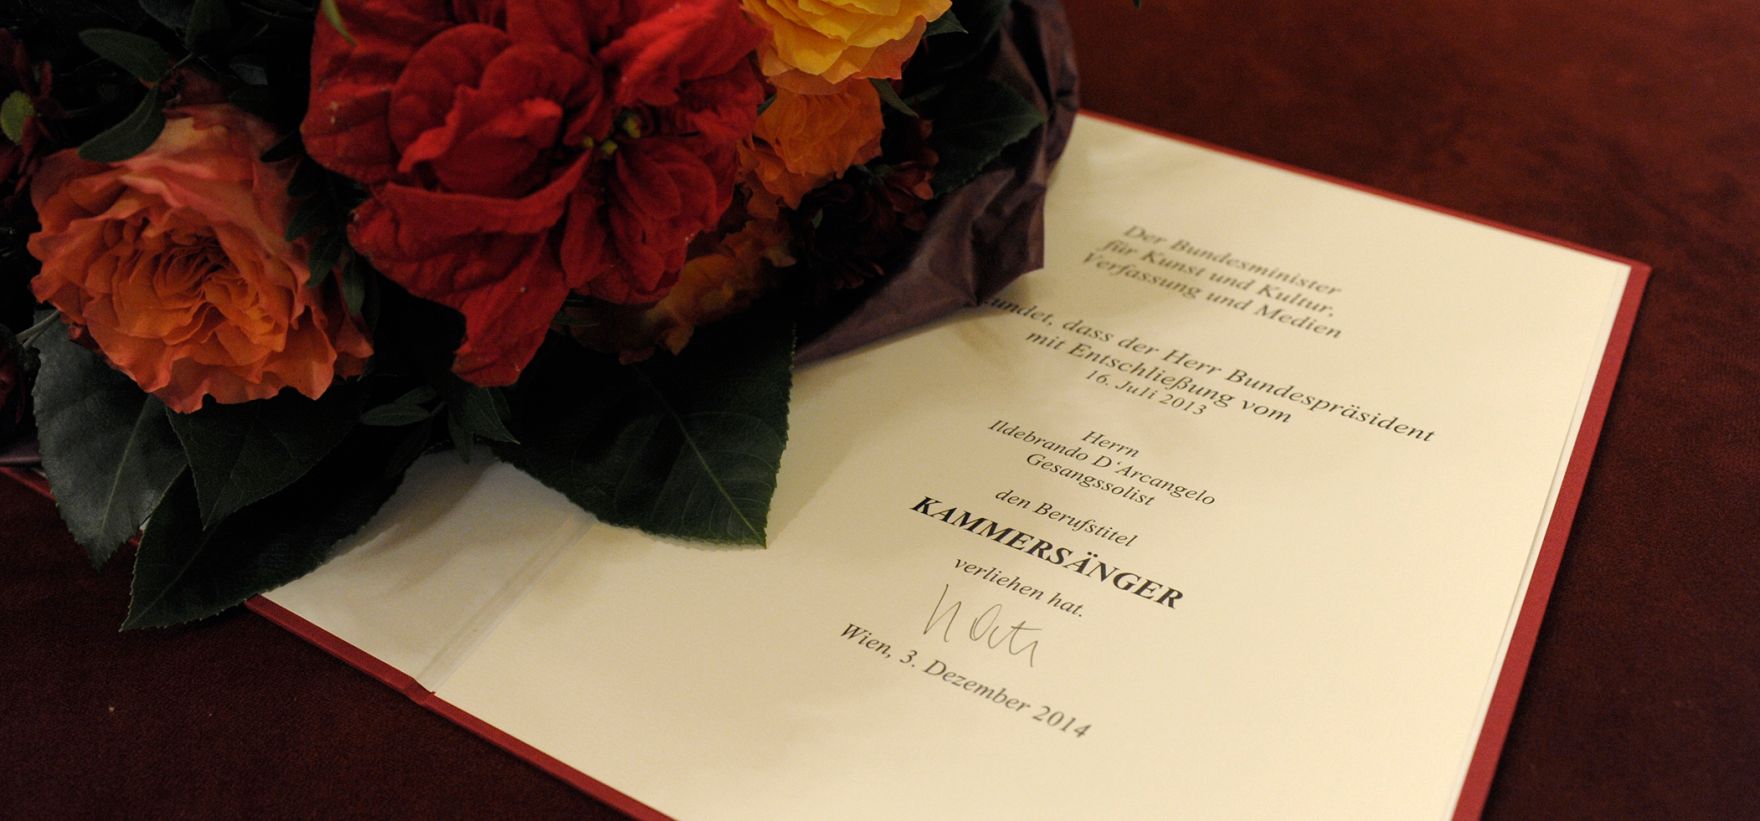 Der Bundesminister
für Kunst und Kultur,
Verfassung und Medien
undet, dass der Herr Bundespräsident
mit Entschließung vom
16. Juli 2013
Herrn
Ildebrando D'Arcangelo
Gesangssolist
den Berufstitel
KAMMERSÄNGER
verliehen hat.
Wien, 3. Dezember 2014